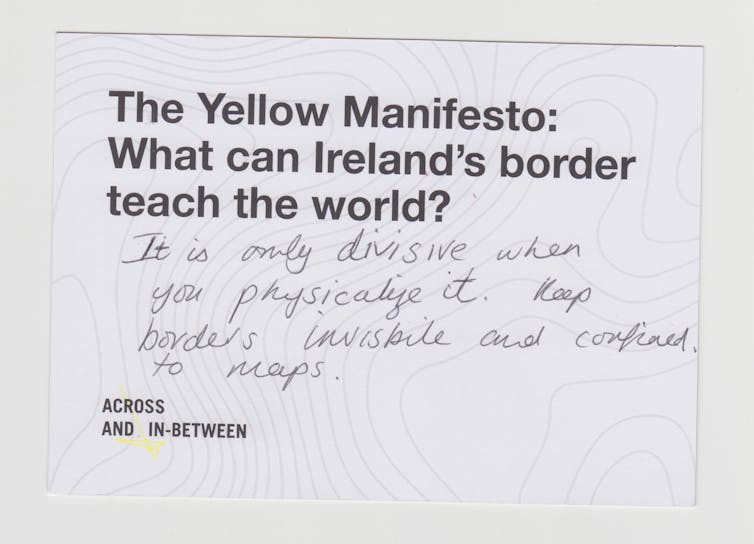 The Yellow Manifesto:
What can Ireland's border
teach the world?
It is only divisive when
you physicalize it. Keep
borders invisbile and confined.
to maps.
ACROSS
AND IN-BETWEEN